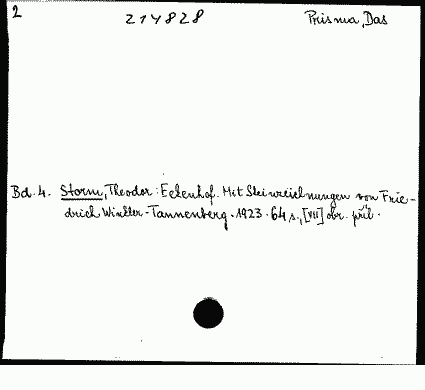 2
214828
Prisma, Das
Bd. 4. Storm, Theodor: Eekenhof. Mit Steinzeichnungen von Frie-
drich Winkler-Tannenberg. 1923. 64 s., [VII] obr. příl.